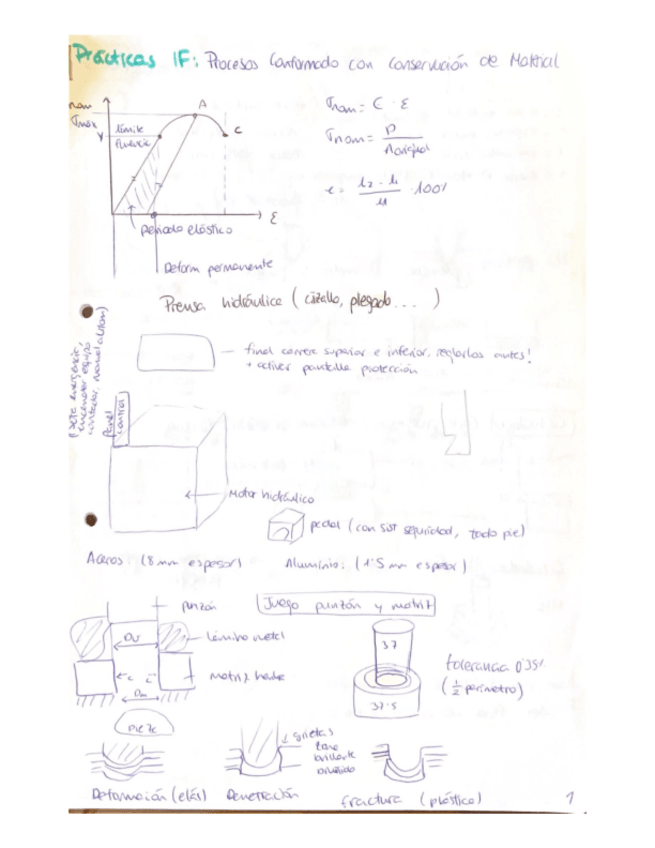 Prácticas IF: Procesos Conformado con Conservación de Material
σnom
σmáx
Y
límite
fluencia
A
C
ε
periodo elástico
Deform permanente
σnom = C · ε
σnom = P / Aoriginal
e = l2 - l1 / l1 · 100%
Prensa hidráulica (cizalla, plegado...)
final carrera superior e inferior, reglarlos antes!
+ activar pantalla protección
Panel
control
Motor hidráulico
pedal (con sist seguridad, todo pie)
Aceros (8 mm espesor)
Aluminio: (1'5 mm espesor)
punzón
Juego punzón y matriz
lámina metal
matriz
c
c
37
37.5
tolerancia 0'35%
(1/2 perímetro)
pieza
grietas
zona
brillante
Deformación (elás)
Penetración
fractura (plástico)
1